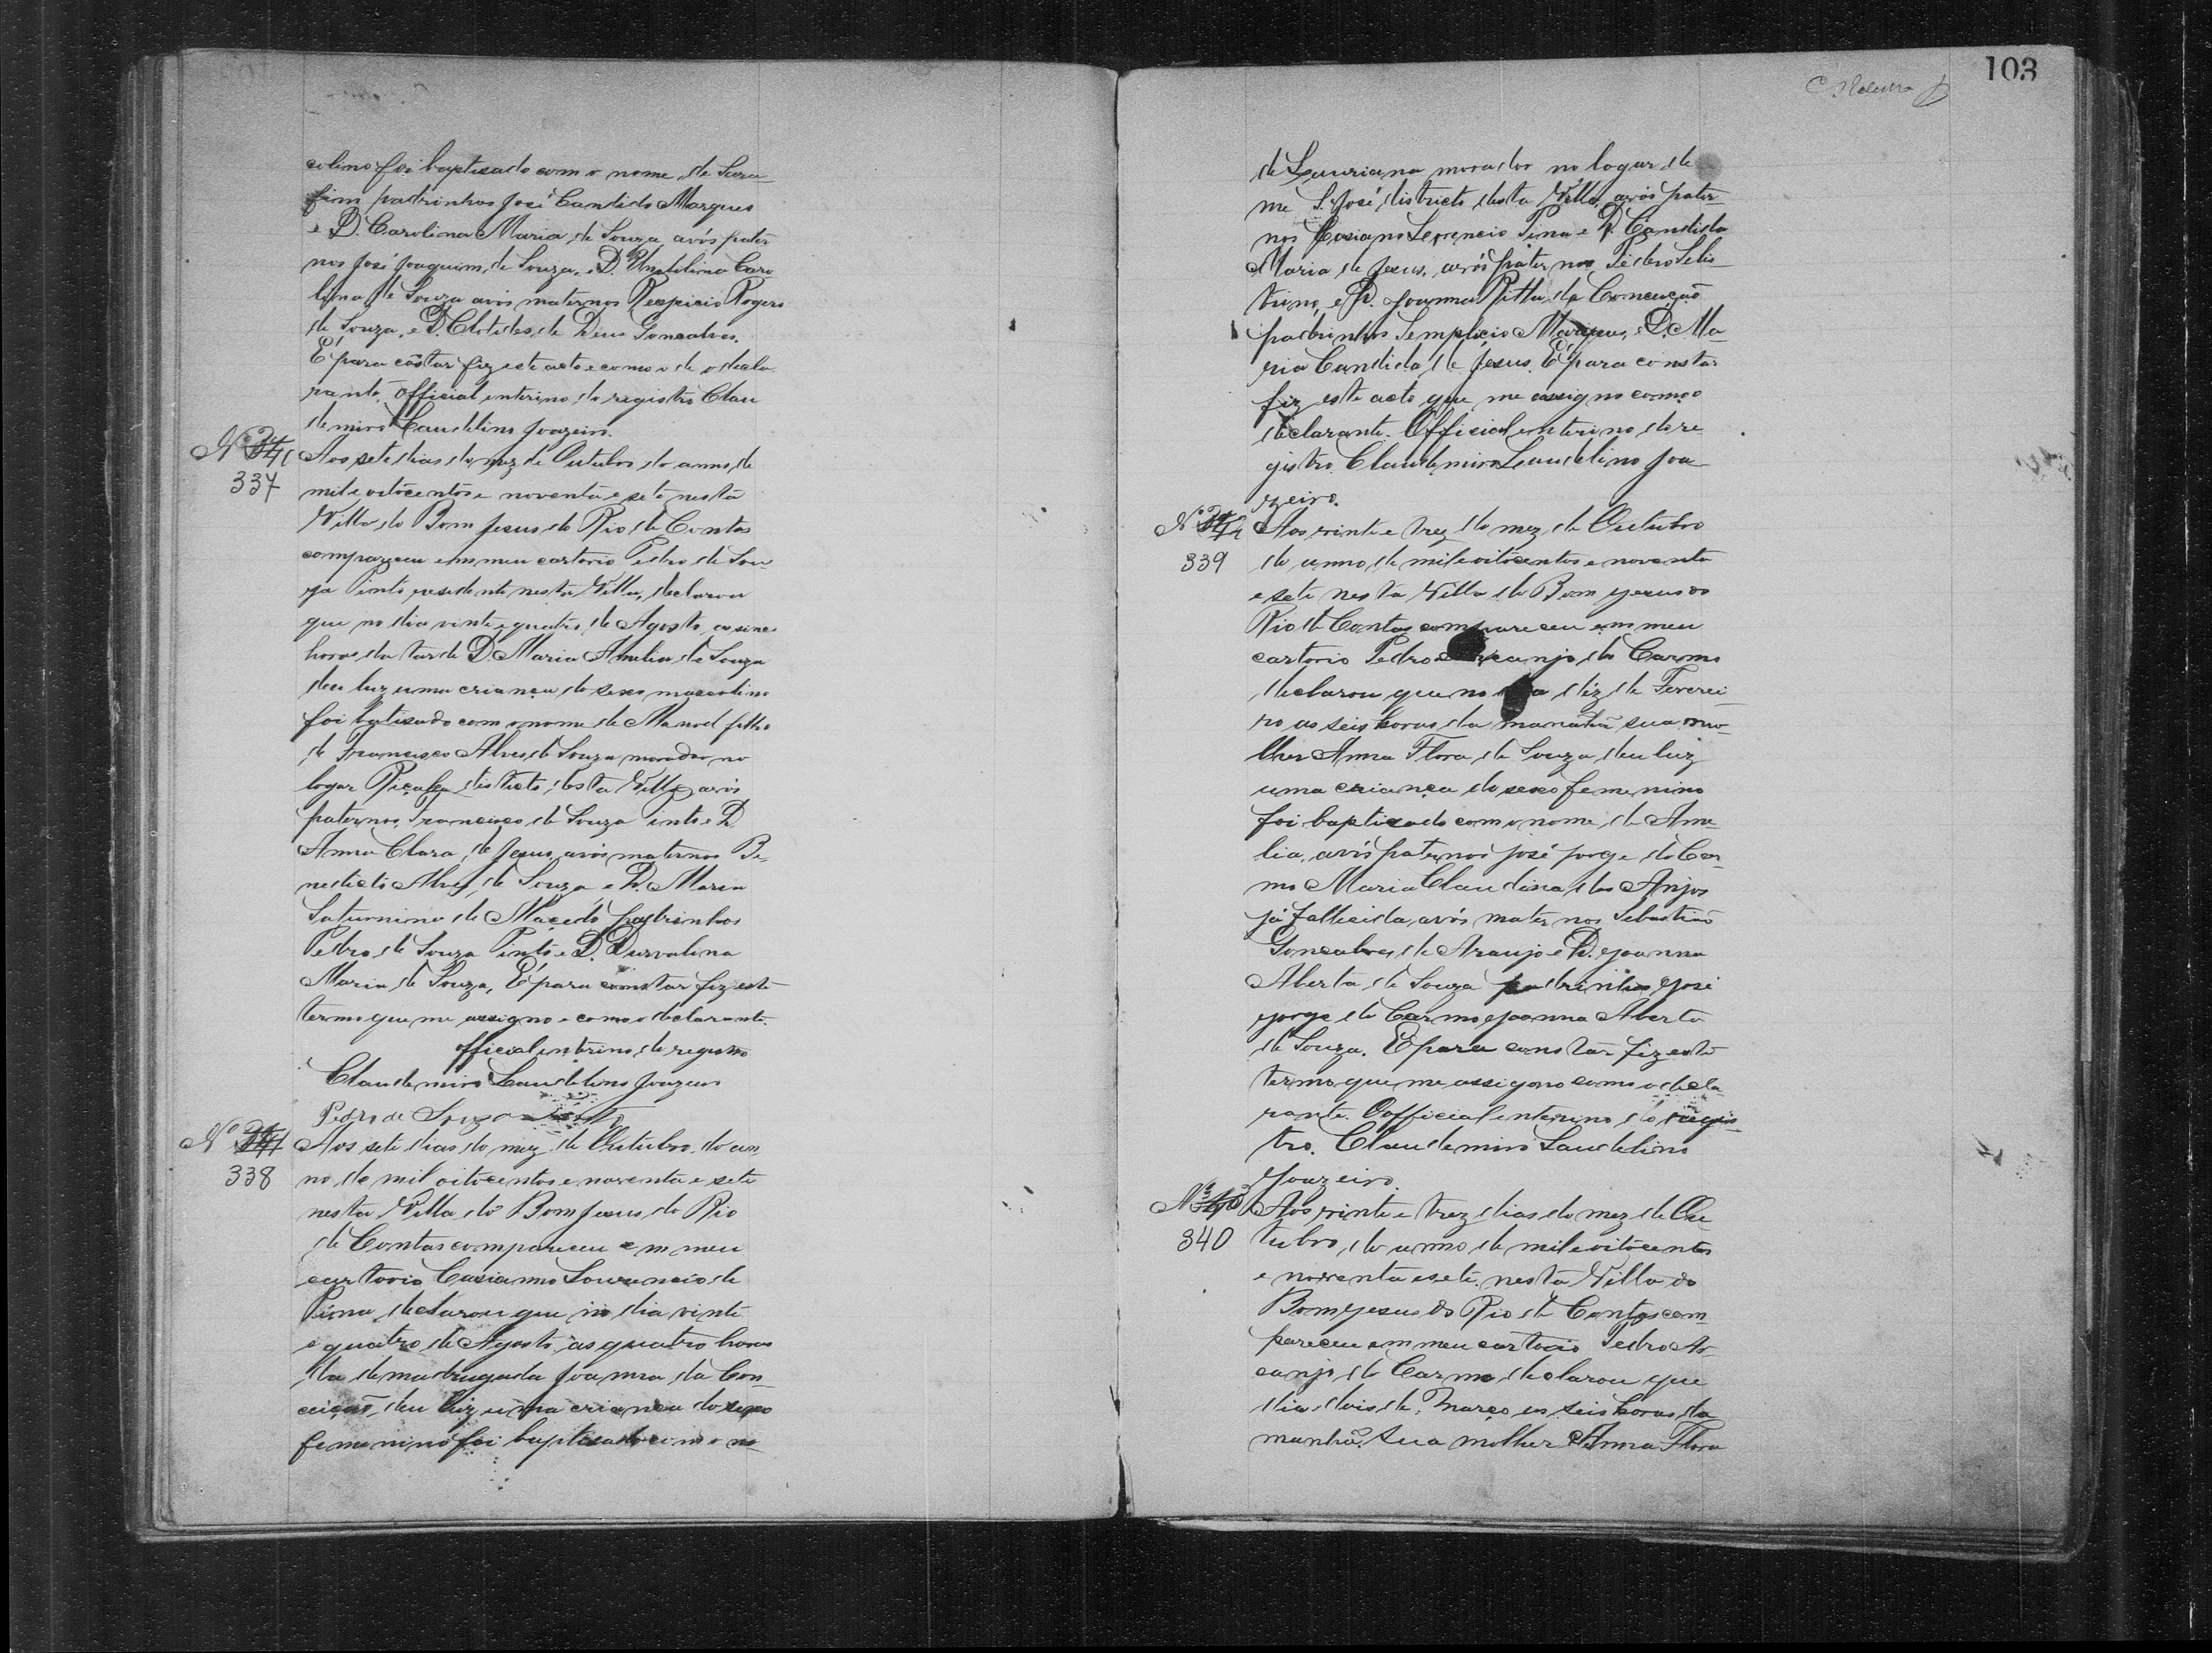 colino foi baptisado com o nome de Sera-
fim padrinhos José Candido Marques
e D. Carolina Maria de Souza avós pater
nos José Joaquim de Souza e D. Umbilina Caro
lina de Souza avós maternos Respicio Rogero
de Souza, e D. Clotides de Deus Gonsalves.
E para cõstar fiz este acto e como o de o decla
rante. Official enterino do registro Clau
demiro Laudelino Joazeiro.
Nº
337
Aos sete dias do mez de Outubro do anno de
mil e oitocentos e noventa e sete nesta
Villa do Bom Jesus do Rio de Contas
comparzeu em meu cartorio Pedro de Sou
za Pinto residente nesta Villa, declarou
que no dia vinte e quatro de Agosto as sinc
horas da tarde D. Maria Amelia de Souza
deu luz uma criança do sexo mascolino
foi batisado com o nome de Manoel filho
de Francisco Alves de Souza morador no
logar disticto desta Villa avós
paternos Francisco de Souza Pinto e D.
Anna Clara de Jesus avós maternos Be
nedicto Alves de Souza e D. Maria
Saturnina de Macedo padrinhos
Pedro de Souza Pinto e D. Durvalina
Maria de Souza, E para constar fiz este
termo que me assigno e como o declarante.
official enterino de registro
Claudemiro Laudelino Joazeiro
Pedro de Souza Pinto
Nº
338
Aos sete dias do mez de Outubro do an
no de mil oitocentos e noventa e sete
nesta Villa do Bom Jesus do Rio
de Contas compareceu em meu
cartorio Casianno Lourencio de
Pina declarou que no dia vinte
e quatro de Agosto, as quatro horas
da demadrugada Joanna da Con
ceição, deu luz uma criança do sexo
femenino foi baptisado com o no-
103
de Lauriana morador no logar de
me S. José districto desta Villa, avós pater
nos Casiano Lorencio Pina e D. Candida
Maria de Jesus, avós paternos Pedro Seles
trino, e D. Joanna Ritta da Conceição
padrinhos Semplicio Marques, e D. Ma-
ria Candida de Jesus. E para constar
fiz este acto que me assigno como o
declarante. Official enterino do re
gistro Claudemiro Laudelino Joa
zeiro.
Nº
339
Aos vinte e trez do mez de Outubro
do anno de mil e oitocentos e noventa
e sete nesta Villa do Bom Jesus do
Rio de Contas compareceu em meu
cartorio Pedro Arcanjo do Carmo
declarou que no dia déz de Feverei
ro as seis horas da manahã sua mo-
lher Anna Flora de Souza deu luz
uma criança do sexo femenino
foi baptisado com o nome de Ame-
lia, avós paternos José Jorge do Car
mo Maria Claudina dos Anjos
já fallicida, avós maternos Sebastião
Gonsalves de Araujo e D. Joanna
Aberta de Souza padrinhos José
Jorge do Carmo Joanna Aberta
de Souza. E para constar fiz este
termo que me assigno como o decla
rante. O official enterino do regis-
tro. Claudemiro Laudelino
Joazeiro.
Nº
340
Aos vinte e trez dias do mez de Ou
tubro do anno de mil e oitocentos
e novventa e sete nesta Villa do
Bom Jesus do Rio de Contas com
pareceu em meu cartorio Pedro Ar
canjo do Carmo declarou que
dia dois de Março as seis horas da
manhã. Sua molher Anna Flora